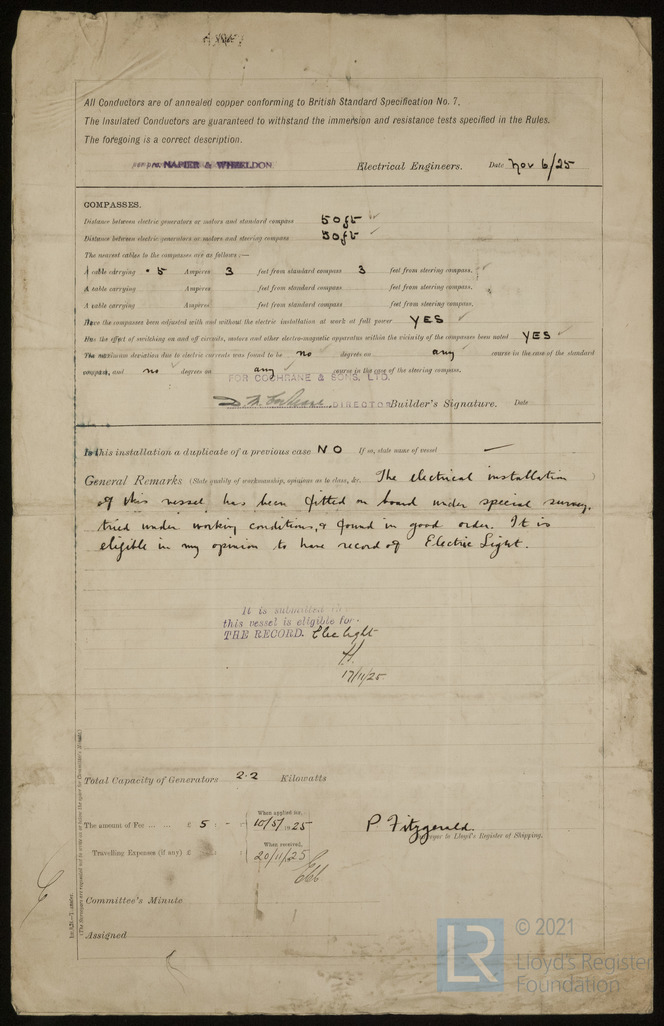 All Conductors are of annealed copper conforming to British Standard Specification No. 7.
The Insulated Conductors are guaranteed to withstand the immersion and resistance tests specified in the Rules.
The foregoing is a correct description.
NAPIER & WHEELDON Electrical Engineers. Date Nov 6/25
COMPASSES.
Distance between electric generators or motors and standard compass 50 ft
Distance between electric generators or motors and steering compass 50 ft
The nearest cables to the compasses are as follows:—
A cable carrying .5 Ampères 3 feet from standard compass 3 feet from steering compass.
A cable carrying Ampères feet from standard compass feet from steering compass.
A cable carrying Ampères feet from standard compass feet from steering compass.
Have the compasses been adjusted with and without the electric installation at work at full power YES
Has the effect of switching on and off circuits, motors and other electro-magnetic apparatus within the vicinity of the compasses been noted YES
The maximum deviation due to electric currents was found to be no degrees on any course in the case of the standard
compass, and no degrees on any course in the case of the steering compass.
FOR COCHRANE & SONS, LTD.
D. M. Cochrane DIRECTOR Builder's Signature. Date
Is this installation a duplicate of a previous case NO If so, state name of vessel —
General Remarks (State quality of workmanship, opinions as to class, &c. The electrical installation
of this vessel has been fitted on board under special survey,
tried under working conditions, & found in good order. It is
eligible in my opinion to have record of Electric Light.
It is submitted
this vessel is eligible for
THE RECORD. Elec light
17/11/25.
Total Capacity of Generators 2.2 Kilowatts
The amount of Fee ... ... £ 5 : - : When applied for, 10/5/1925
P Fitzgerald
Surveyor to Lloyd's Register of Shipping.
Travelling Expenses (if any) £ : : When received, 20/11/25
Committee's Minute
Assigned
LR © 2021
Lloyd's Register
Foundation